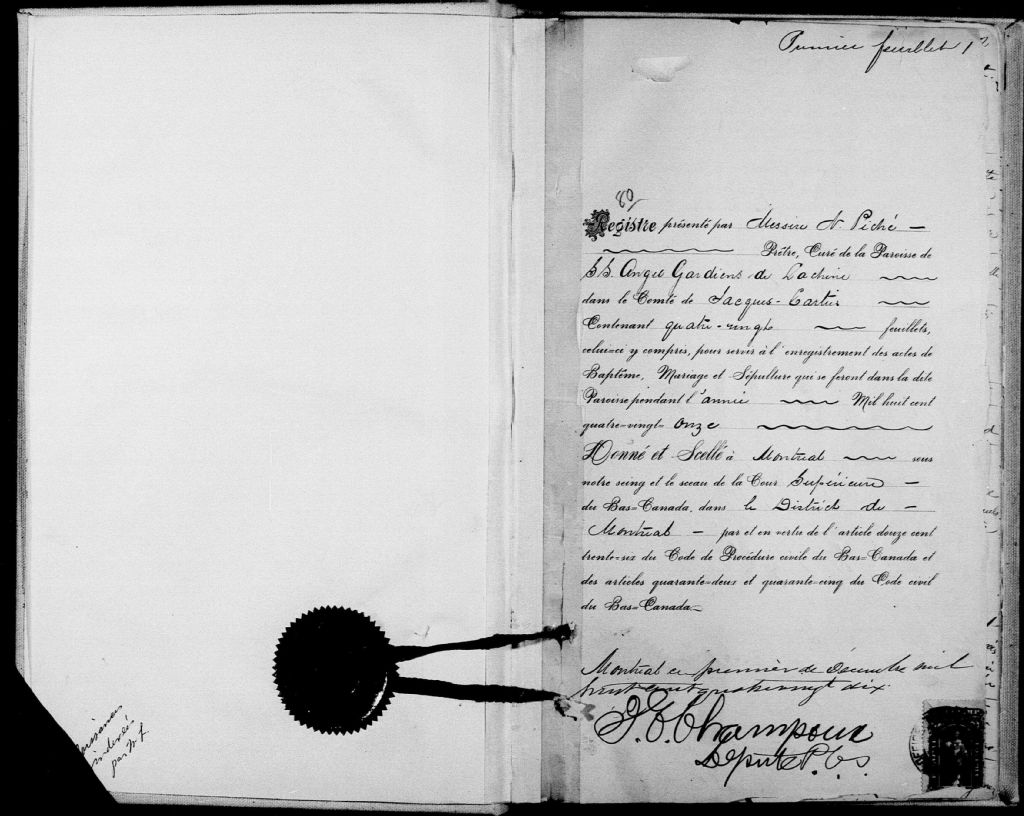 Premier feuillet 1
80
Registre présenté par Messire N. Piché
Prêtre, Curé de la Paroisse de
SS. Anges Gardiens de Lachine
dans le Comté de Jacques-Cartier
Contenant quatre-vingt feuillets,
celui=ci y compris, pour servir à l'enregistrement des actes de
Baptême, Mariage et Sépulture qui se feront dans la dite
Paroisse pendant l'année Mil huit cent
quatre=vingt= onze
Donné et Scellé à Montréal sous
notre seing et le sceau de la Cour Supérieure
du Bas=Canada, dans le District de
Montréal par et en vertu de l'article douze cent
trente=six du Code de Procédure civile du Bas=Canada et
des articles quarante=deux et quarante=cinq du Code civil
du Bas=Canada
Montréal ce premier de Décembre mil
huit cent quatrevingt dix
J. E. Champoux
Député P. C. S.
par